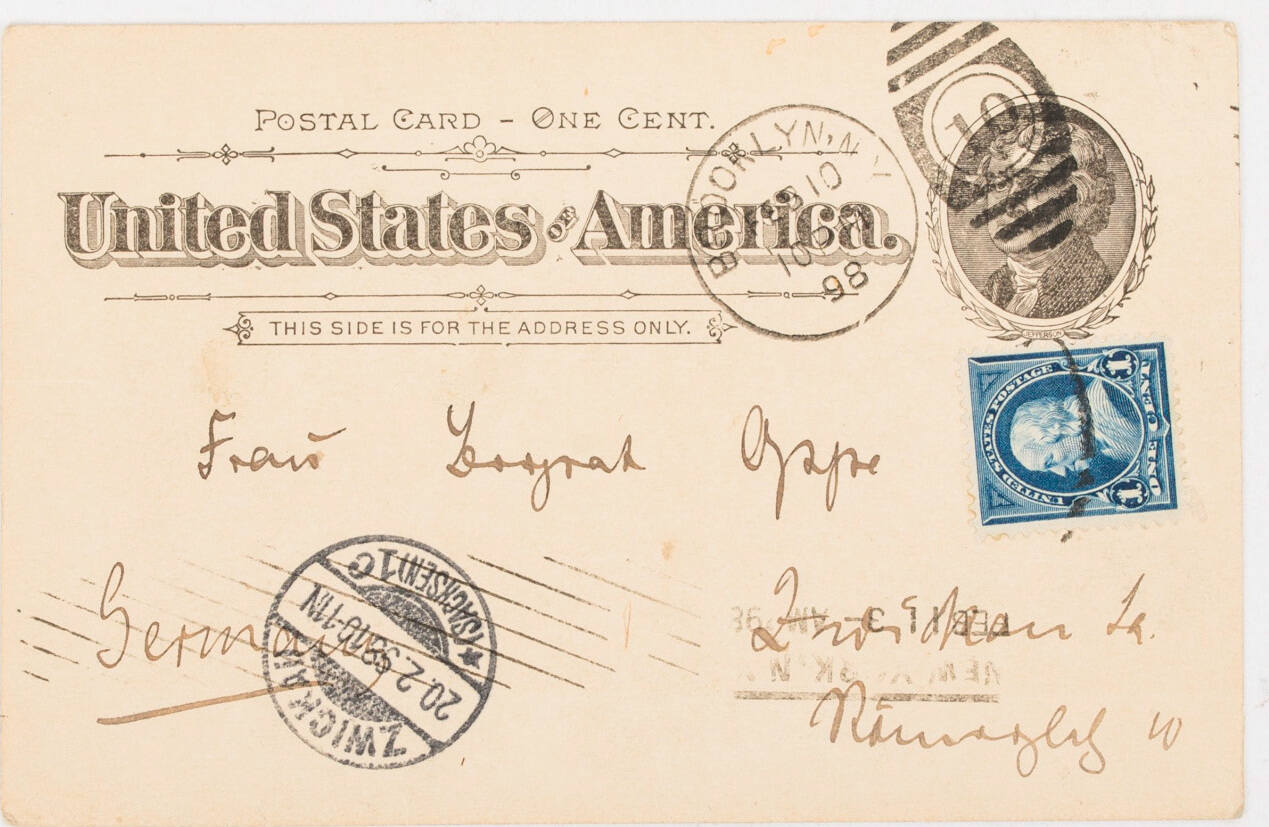 POSTAL CARD - ONE CENT.
United States OF America.
THIS SIDE IS FOR THE ADDRESS ONLY.
BROOKLYN, N.Y.
FEB 10
98
10
JEFFERSON
UNITED STATES POSTAGE
1 1
ONE CENT
Frau Bergrat Oppe
Germany
Zwickau Sa.
10
ZWICKAU (SACHSEN) 1 C
20.2.98 10-11N
FEB 11 3 - AM 98
NEW YORK N.Y.